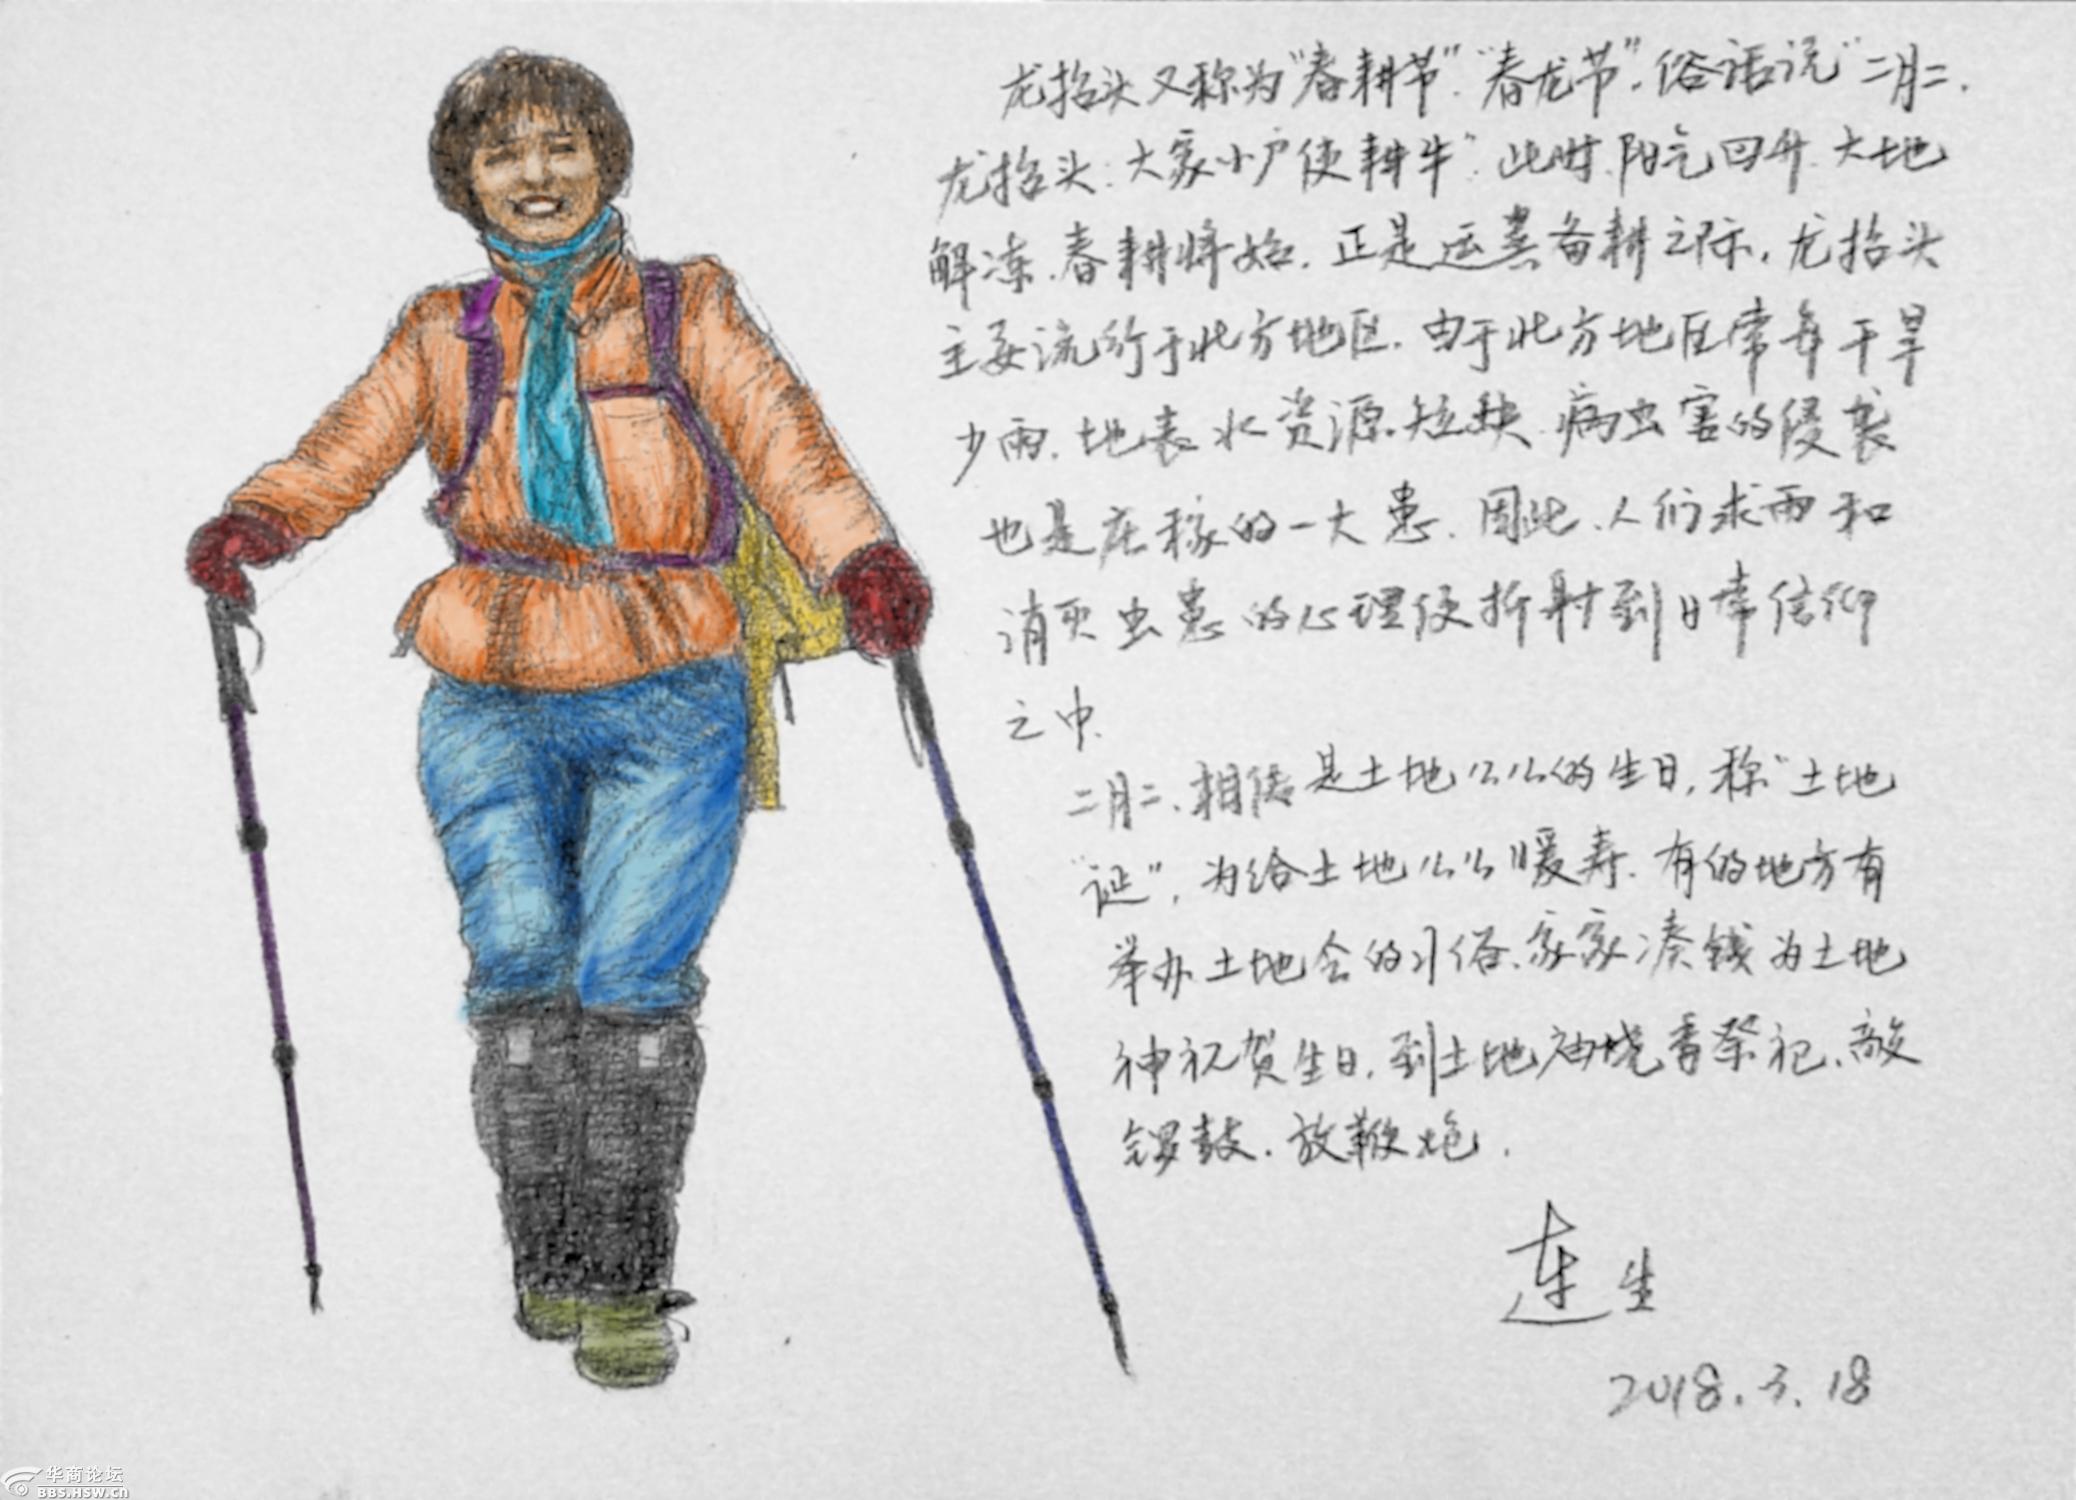 龙抬头又称为“春耕节”.“春龙节”。俗话说“二月二.
龙抬头:大家小户使耕牛”.此时.阳气回升.大地
解冻.春耕将始.正是运粪备耕之际.龙抬头
主要流行于北方地区.由于北方地区常年干旱
少雨.地表水资源短缺.病虫害的侵袭
也是庄稼的一大患.因此.人们求雨和
消灭虫患的心理便折射到日常信仰
之中.
二月二.相传是土地公公的生日,称“土地
“诞”,为给土地公公暖寿.有的地方有
举办土地会的习俗.家家凑钱为土地
神祝贺生日.到土地庙烧香祭祀.敲
锣鼓.放鞭炮.
连生
2018.3.18
华商论坛
BBS.HSW.CN